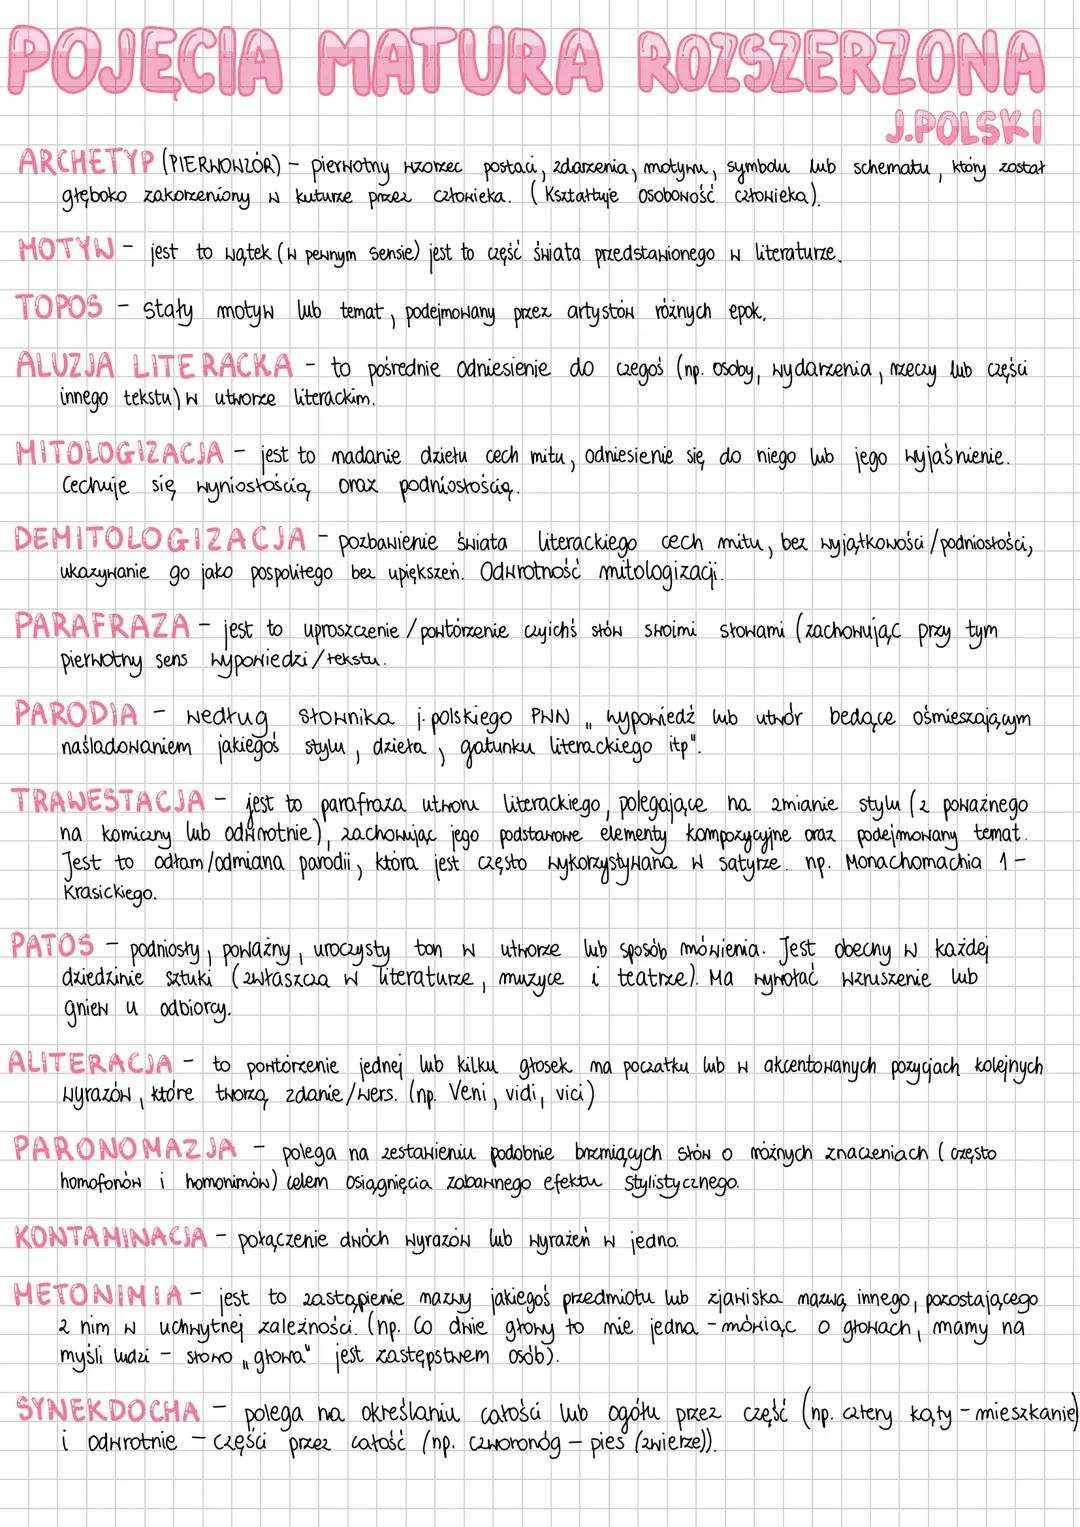 POJĘCIA MATURA ROZSZERZONA
J.POLSKI
ARCHETYP (PIERWOWZÓR) - pierwotny wzorzec postaci, zdarzenia, motywu, symbolu lub schematu, który został
głęboko zakorzeniony w kuturze przez człowieka. (Kształtuje osobowość człowieka).
MOTYW - jest to wątek (w pewnym sensie) jest to część świata przedstawionego w literaturze.
TOPOS - stały motyw lub temat, podejmowany przez artystów różnych epok.
ALUZJA LITERACKA - to pośrednie odniesienie do czegoś (np. osoby, wydarzenia, rzeczy lub części
innego tekstu) w utworze literackim.
MITOLOGIZACJA - jest to nadanie dziełu cech mitu, odniesienie się do niego lub jego wyjaśnienie.
Cechuje się wyniosłością oraz podniosłością.
DEMITOLOGIZACJA - pozbawienie świata literackiego cech mitu, bez wyjątkowości/podniosłości,
ukazywanie go jako pospolitego bez upiększeń. Odwrotność mitologizacji.
PARAFRAZA - jest to uproszczenie/powtórzenie czyichś słów swoimi słowami (zachowując przy tym
pierwotny sens wypowiedzi/tekstu.
PARODIA - według słownika j. polskiego PWN „wypowiedź lub utwór bedące ośmieszającym
naśladowaniem jakiegoś stylu, dzieła, gatunku literackiego itp".
TRAWESTACJA - jest to parafraza utworu literackiego, polegające na zmianie stylu (z poważnego
na komiczny lub odwrotnie), zachowując jego podstawowe elementy kompozycyjne oraz podejmowany temat.
Jest to odłam/odmiana parodii, która jest często wykorzystywana w satyrze. np. Monachomachia I -
Krasickiego.
PATOS - podniosły, poważny, uroczysty ton w utworze lub sposób mówienia. Jest obecny w każdej
dziedzinie sztuki (zwłaszcza w literaturze, muzyce i teatrze). Ma wywołać wzruszenie lub
gniew u odbiorcy.
ALITERACJA - to powtórzenie jednej lub kilku głosek na początku lub w akcentowanych pozycjach kolejnych
wyrazów, które tworzą zdanie/wers. (np. Veni, vidi, vici)
PARONOMAZJA - polega na zestawieniu podobnie brzmiących słów o różnych znaczeniach (często
homofonów i homonimów) celem osiągnięcia zabawnego efektu stylistycznego.
KONTAMINACJA - połączenie dwóch wyrazów lub wyrażeń w jedno.
METONIMIA - jest to zastąpienie nazwy jakiegoś przedmiotu lub zjawiska nazwą innego, pozostającego
z nim w uchwytnej zależności. (np. Co dwie głowy to nie jedna - mówiąc o głowach, mamy na
myśli ludzi - słowo „głowa" jest zastępstwem osób).
SYNEKDOCHA - polega na określaniu całości lub ogółu przez część (np. cztery kąty - mieszkanie)
i odwrotnie - części przez całość (np. czworonóg - pies (zwierze)).